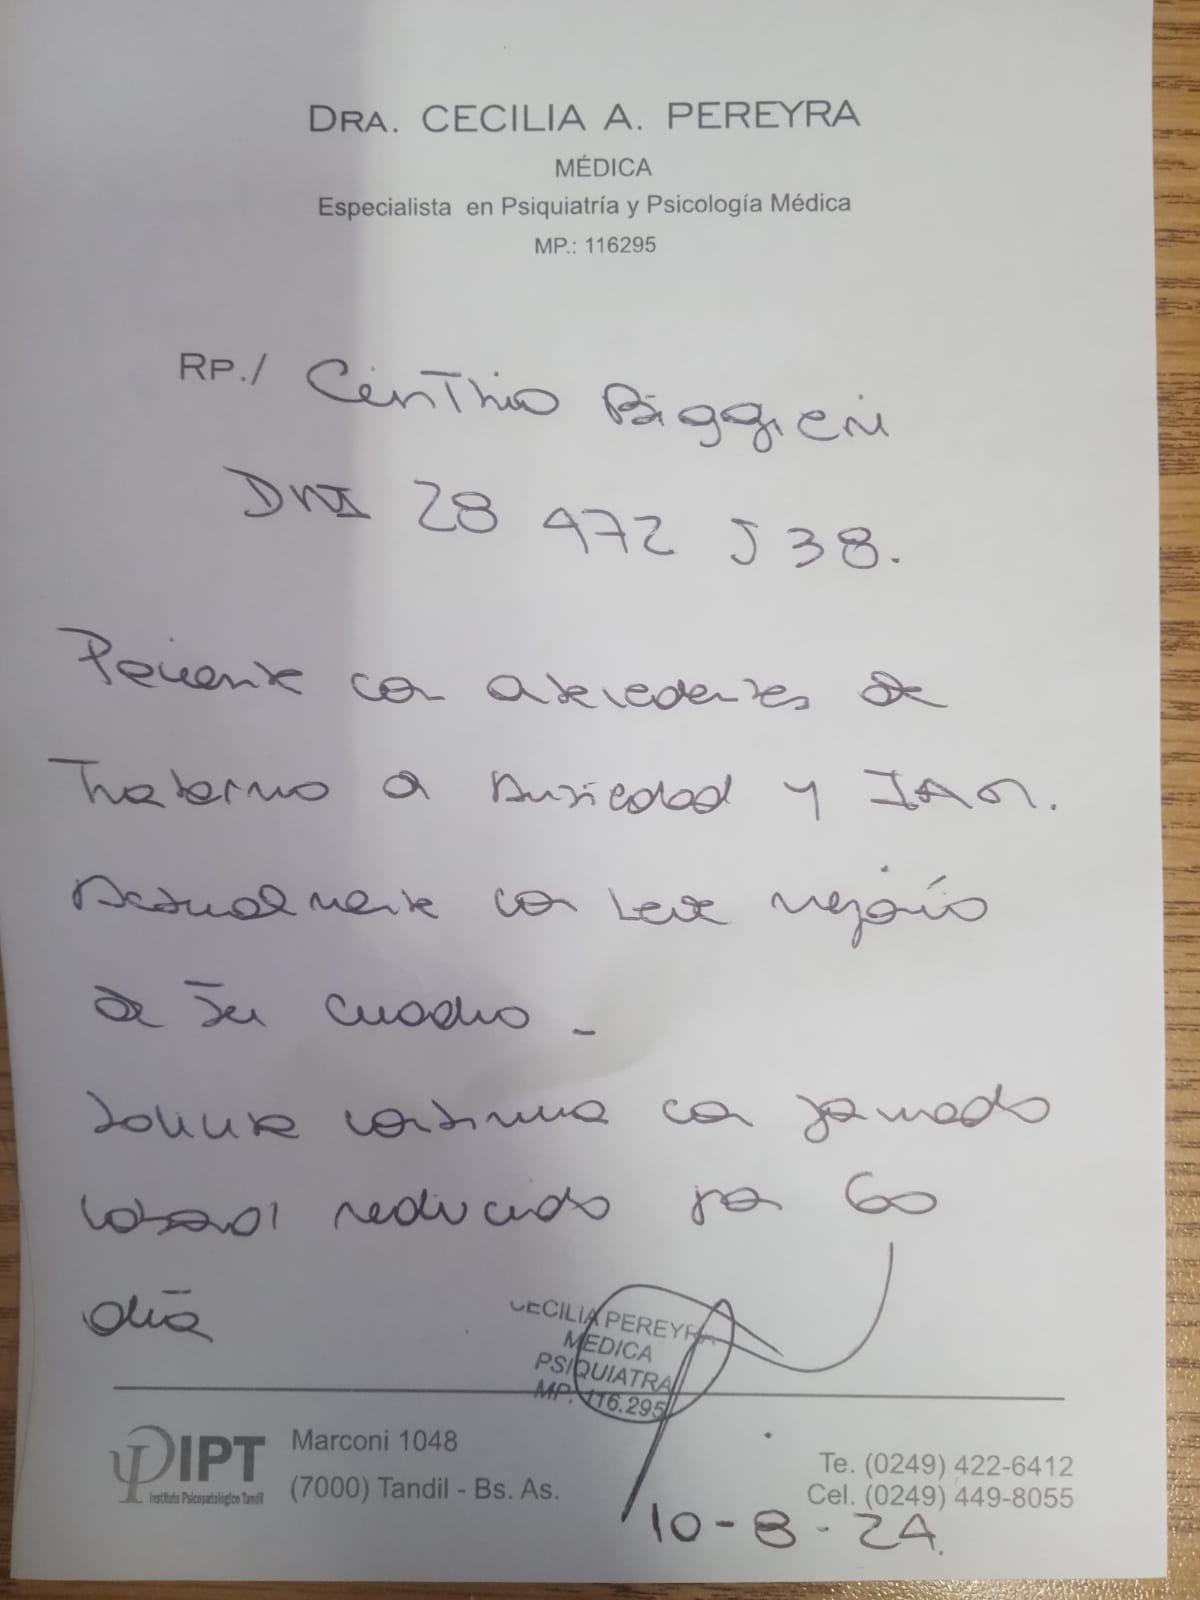 DRA. CECILIA A. PEREYRA
MÉDICA
Especialista en Psiquiatría y Psicología Médica
MP.: 116295
RP./ Cinthia Biggieri
DNI 28 472 538.
Paciente con antecedentes de
Trastorno de Ansiedad y IAM.
Actualmente con leve mejoría
de su cuadro.
Solicito continua con jornada
laboral reducida por 60
días
CECILIA PEREYRA
MEDICA
PSIQUIATRA
MP. 116.295
IPT
Instituto Psicopatológico Tandil
Marconi 1048
(7000) Tandil - Bs. As.
Te. (0249) 422-6412
Cel. (0249) 449-8055
10-8-24.